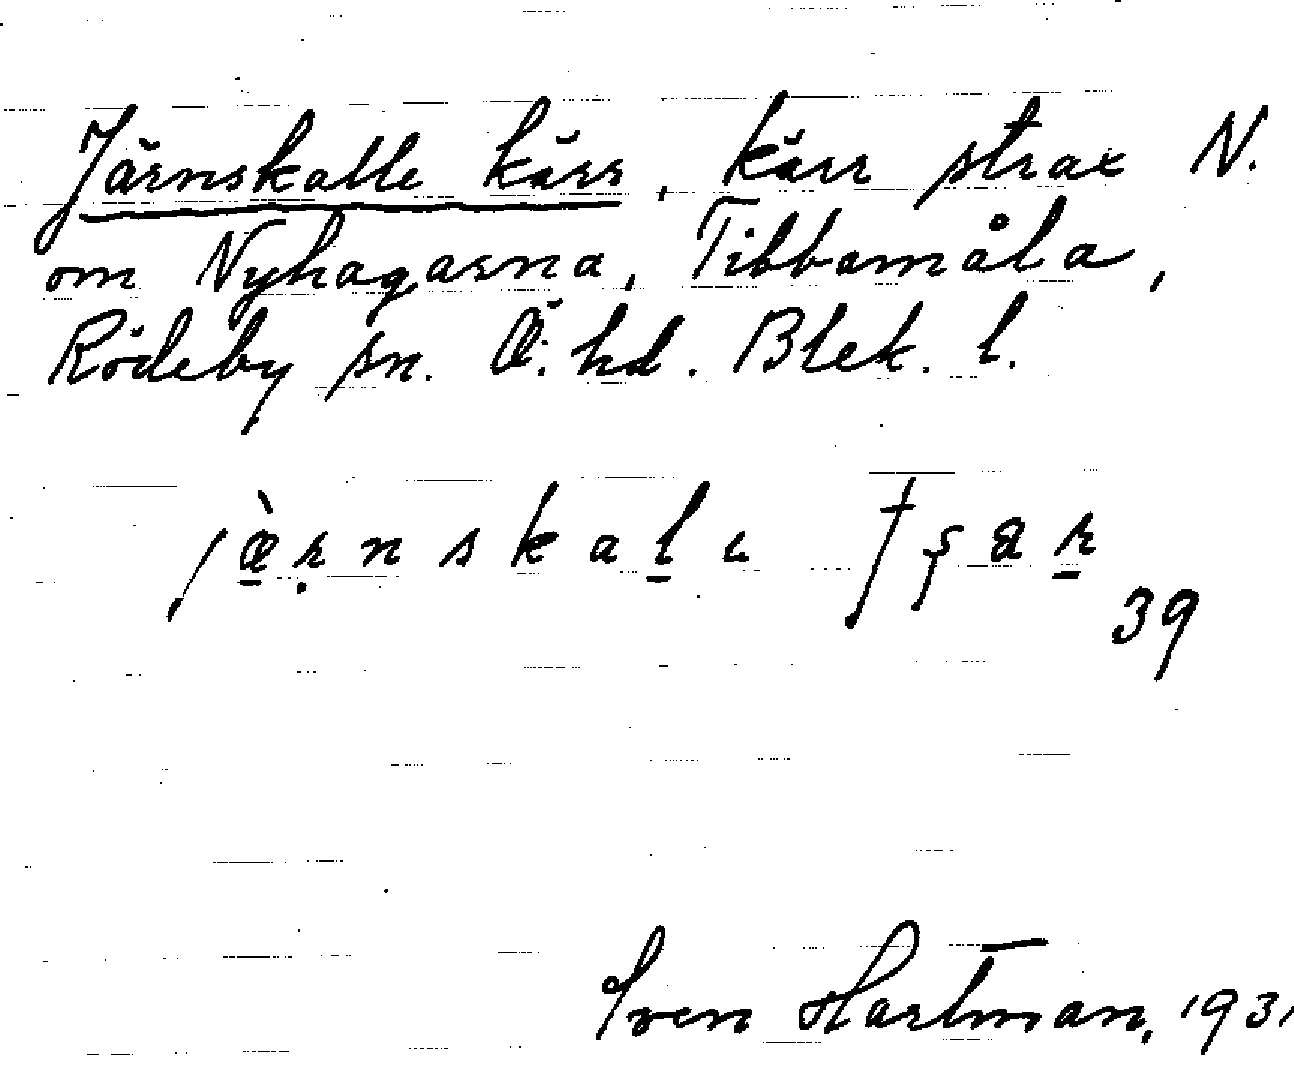 Järnskalle kärr, kärr strax N.
om Nyhagarna, Tibbamåla,
Rödeby sn. Ö. hd. Blek. l.
39
Sven Hartman, 1931